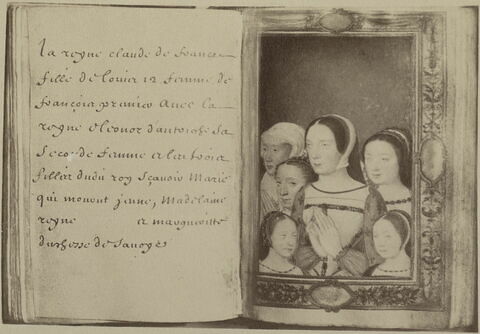 La reyne claude de france
fille de louis 12 femme de
françois premier avec la
reyne eleonor d'autriche sa
seconde femme et les trois
filles dudit roy sçavoir Marie
qui mourut jeune, Madelaine
reyne et margueritte
duchesse de Savoye